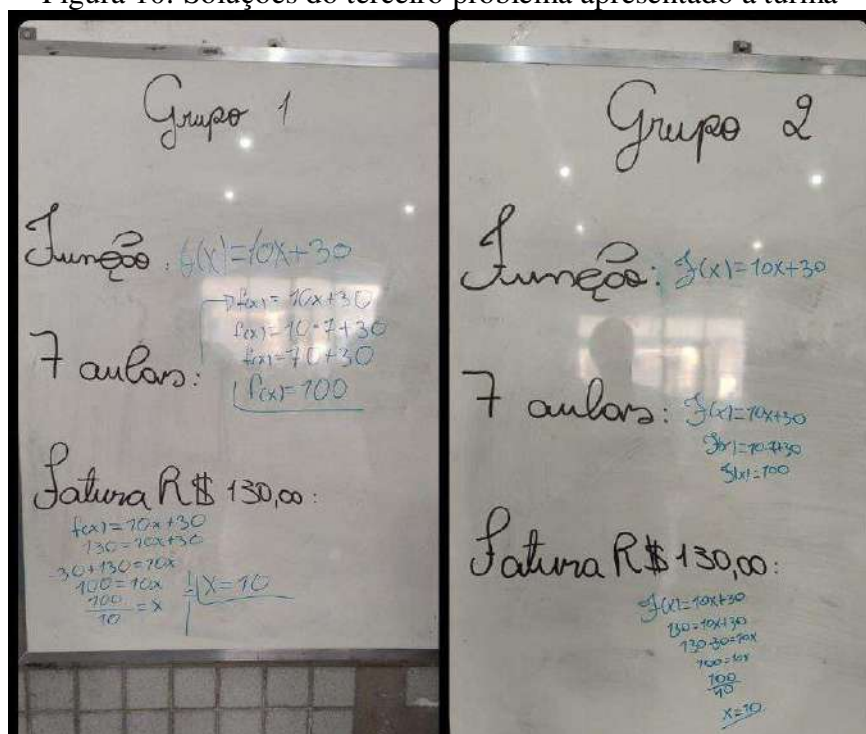 Figura 10: Soluções do terceiro problema apresentado à turma
Grupo 1
Função: f(x)=10x+30
7 aulas:
f(x)=10x+30
f(x)=10·7+30
f(x)=70+30
f(x)=100
Fatura R$ 130,00:
f(x)=10x+30
130=10x+30
-30+130=10x
100=10x
100/10=x
x=10
Grupo 2
Função: f(x)=10x+30
7 aulas: f(x)=10x+30
f(x)=10·7+30
f(x)=100
Fatura R$ 130,00:
f(x)=10x+30
130=10x+30
130-30=10x
100=10x
100/10
x=10